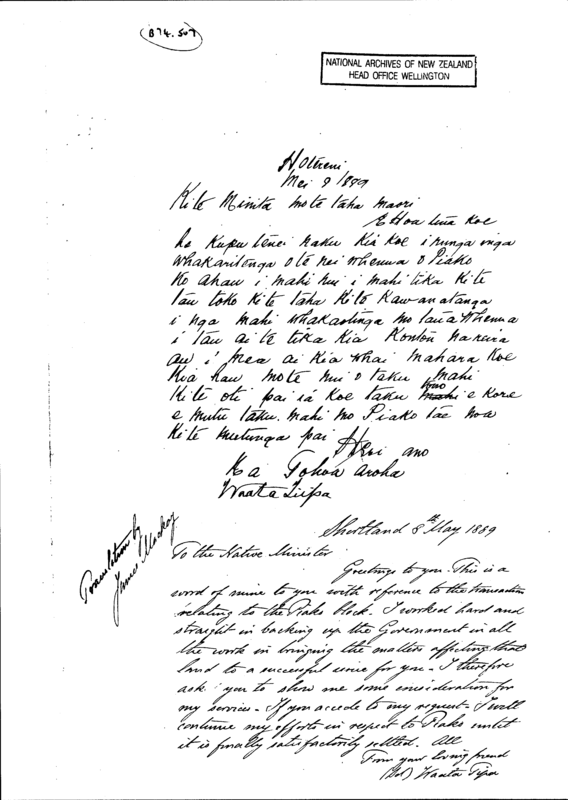 (B74.507)
NATIONAL ARCHIVES OF NEW ZEALAND
HEAD OFFICE WELLINGTON
Hotereni
Mei 9 1889
Kite Minita mote taha maori
E Hoa tena koe
he Kupu tenei naku Kia Koe i runga inga
whakaritenga ote nei whenua o Piako
Ko ahau i mahi nui i mahi tika Kite
tau toko Kite taha Kito Kawanatanga
i nga mahi whakaotinga mo taua whenua
i tau ai te tika Kia Koutou na reira
au i mea ai Kia whai mahara Koe
Kia hau mote nui o taku mahi
Kite oti pai ia Koe taku mahi e Kore
e mutu taku mahi mo Piako tae noa
Kite mutunga pai
Heoi ano
Na Tohoa aroha
Waata Tiipa
Translation by
James Mackay
Shortland 8th May 1889
To the Native Minister
Greetings to you. This is a
word of mine to you with reference to the transaction
relating to the Piako block. I worked hard and
straight in backing up the Government in all
the work in bringing the matters affecting that
land to a successful issue for you - I therefore
ask you to show me some consideration for
my services - If you accede to my request - I will
continue my efforts in respect to Piako until
it is finally satisfactorily settled. All
From your loving friend
(Sd) Waata Tipa